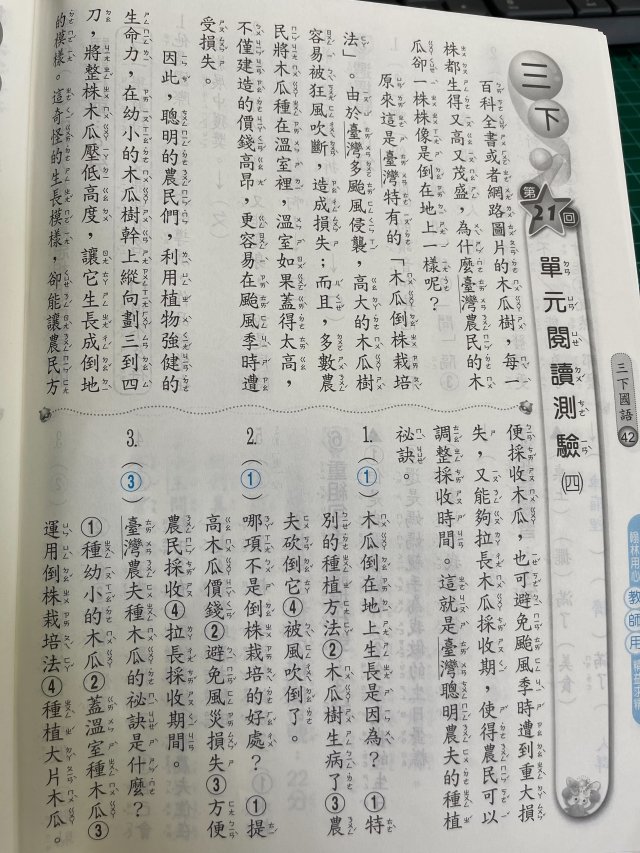 三下
第21回
單元閱讀測驗(四)
百科全書或者網路圖片的木瓜樹，每一
株都生得又高又茂盛，為什麼臺灣農民的木
瓜卻一株株像是倒在地上一樣呢？
原來這是臺灣特有的「木瓜倒株栽培
法」。由於臺灣多颱風侵襲，高大的木瓜樹
容易被狂風吹斷，造成損失；而且，多數農
民將木瓜種在溫室裡，溫室如果蓋得太高，
不僅建造的價錢高昂，更容易在颱風季時遭
受損失。
因此，聰明的農民們，利用植物強健的
生命力，在幼小的木瓜樹幹上縱向劃三到四
刀，將整株木瓜壓低高度，讓它生長成倒地
的模樣。這奇怪的生長模樣，卻能讓農民方
便採收木瓜，也可避免颱風季時遭到重大損
失，又能夠拉長木瓜採收期，使得農民可以
調整採收時間。這就是臺灣聰明農夫的種植
祕訣。
1.(①)木瓜倒株生長是因為？①特
別的種植方法②木瓜樹生病了③農
夫砍倒它④被風吹倒了。
2.(①)哪項不是倒株栽培的好處？①提
高木瓜價錢②避免風災損失③方便
農民採收④拉長採收期間。
3.(③)臺灣農夫種木瓜的祕訣是什麼？
①種幼小的木瓜②蓋溫室種木瓜③
運用倒株栽培法④種植大片木瓜。
三下國語
42
翰林用心
教師用